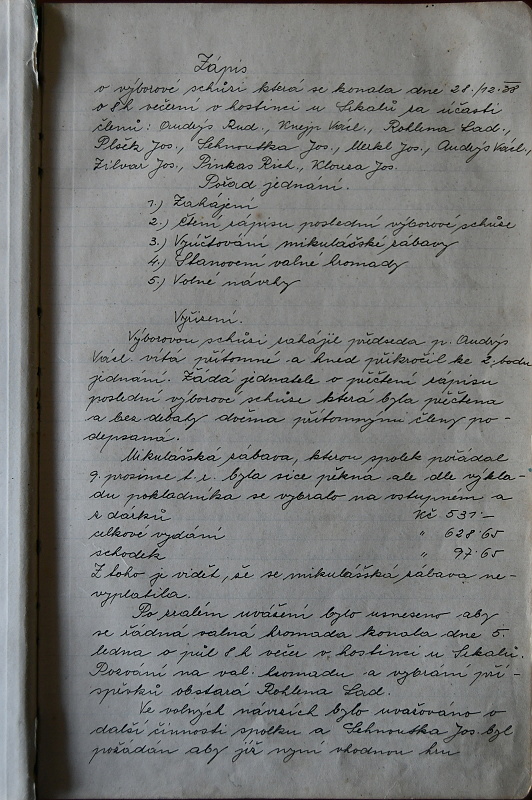 Zápis
o výborové schůzi která se konala dne 28./12.38
o 8 h večerní v hostinci u Sikalů za účasti
členů: Ondrýs Rud., Knejp Václ., Rohlena Lad.,
Plšek Jos., Sehnoutka Jos., Merkl Jos., Ondrýs Václ.,
Zilvar Jos., Pinkas Rich., Klouza Jos.
Pořad jednání.
1.) Zahájení
2.) Čtení zápisu poslední výborové schůze
3.) Vyúčtování mikulášské zábavy
4.) Stanovení valné hromady
5.) Volné návrhy
Vyřízení.
Výborovou schůzi zahájil předseda p. Ondrýs
Václ. vítá přítomné a hned přikročil ke 2. bodu
jednání. Žádá jednatele o přečtení zápisu
poslední výborové schůze která byla přečtena
a bez debaty dvěma přítomnými členy po-
depsána.
Mikulášská zábava, kterou spolek pořádal
9. prosince t. r. byla sice pěkná ale dle výkla-
du pokladníka se vybralo na vstupném a
z dárků Kč 531·—
celkové vydání „ 628·65
schodek „ 97·65
Z toho je vidět, že se mikulášská zábava ne-
vyplatila.
Po zralém uvážení bylo usneseno aby
se řádná valná hromada konala dne 5.
ledna o půl 8 h večer v hostinci u Sikalů.
Pozvání na val. hromadu a vybrání pří-
spěvků obstará Rohlena Lad.
Ve volných návrzích bylo uvažováno o
další činnosti spolku a Sehnoutka Jos. byl
požádán aby již nyní vhodnou hru